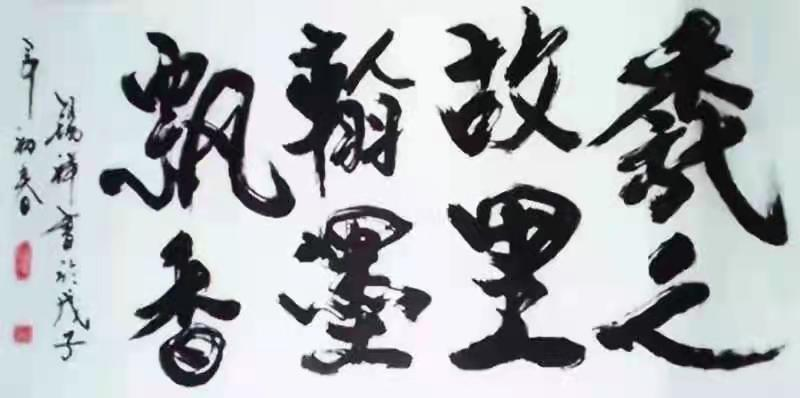 羲之
故里
翰墨
飘香
锡祥書於戊子
年初春